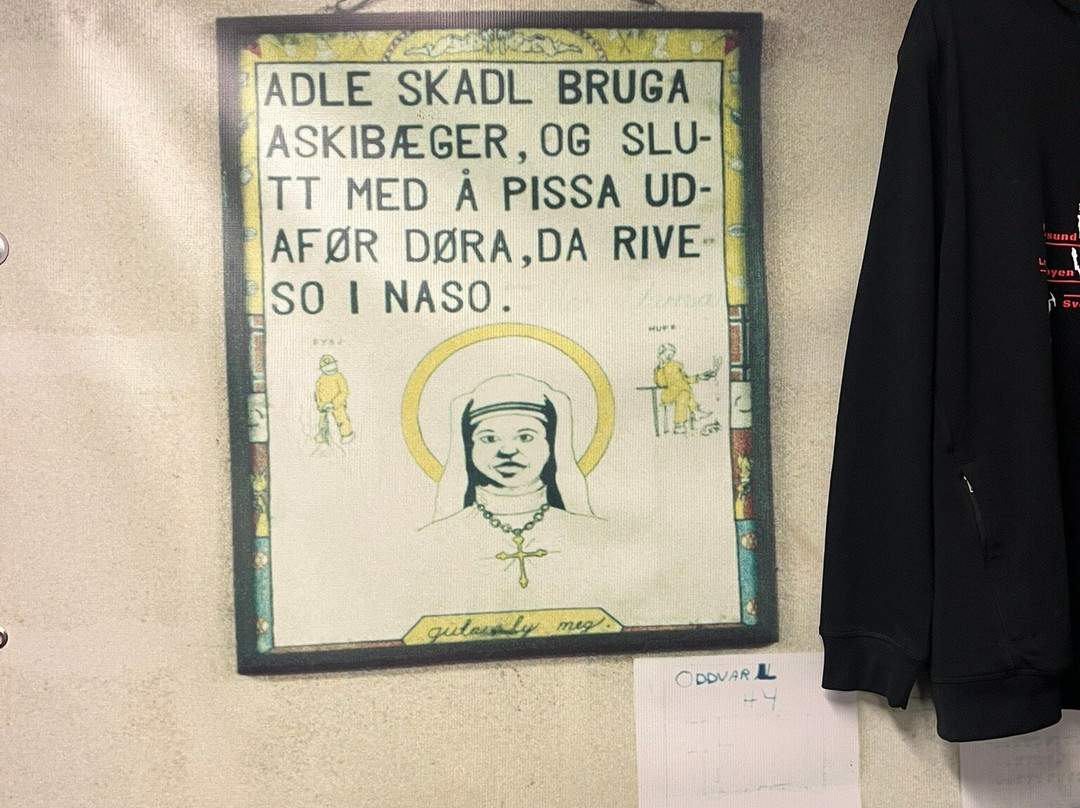 ADLE SKADL BRUGA
ASKIBÆGER, OG SLU-
TT MED Å PISSA UD-
AFØR DØRA, DA RIVE
SO I NASO.
HUFF
meg.
ODDVAR L
44
sund
yen
Sv